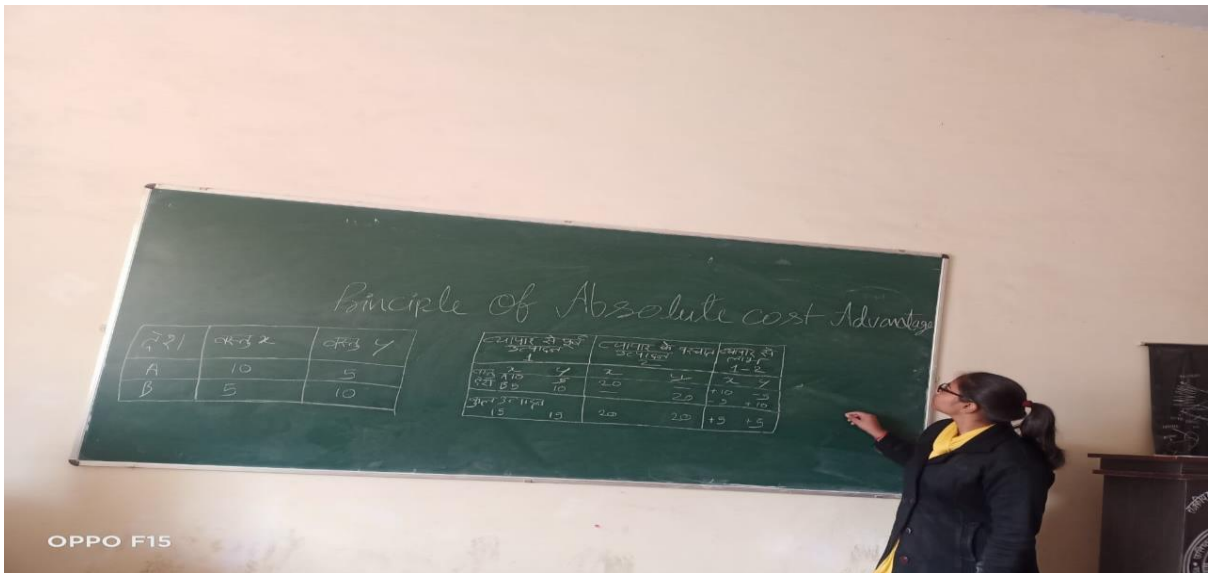 Principle of Absolute cost Advantage
देश वस्तु x वस्तु y
A 10 5
B 5 10
व्यापार से पूर्व उत्पादन व्यापार के पश्चात उत्पादन व्यापार से लाभ
1 2 1-2
x y x y x y
A 10 5 20 — +10 -5
देश B 5 10 — 20 -5 +10
कुल उत्पादन
15 15 20 20 +5 +5
OPPO F15